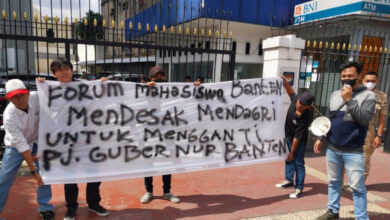 BNI
ATM
FORUM MAHASISWA BANTEN
MENDESAK MENDAGRI
UNTUK MENGGANTI
PJ. GUBERNUR BANTEN